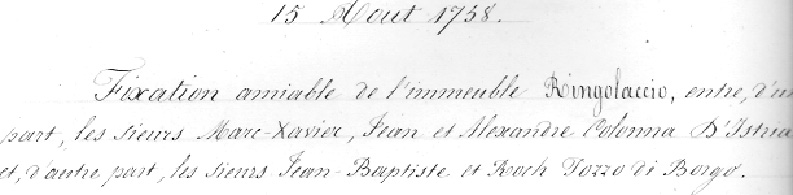 15 Aout 1758.
Fixation amiable de l'immeuble Ringolaccio, entre, d'un
part, les sieurs Marc-Xavier, Jean et Alexandre Colonna D'Istria
et, d'autre part, les sieurs Jean-Baptiste et Roch Pozzo di Borgo.